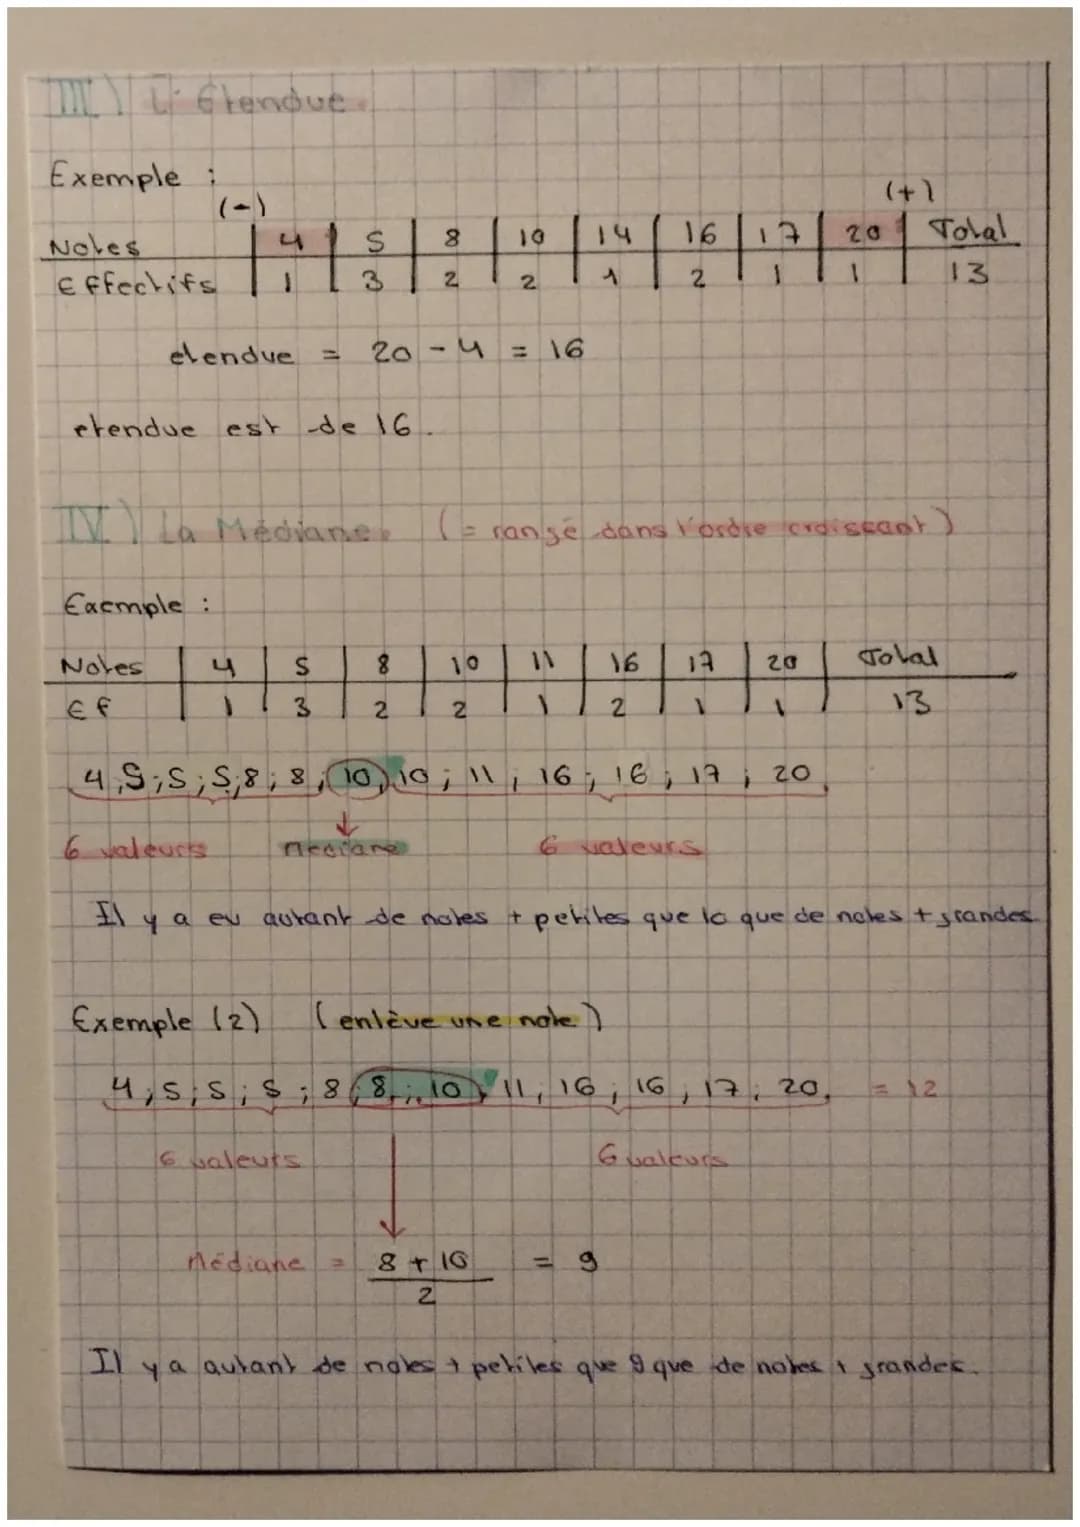 III) L'étendue.
Exemple :
(-) (+)
Notes 4 5 8 10 14 16 17 20 Total
Effectifs 1 3 2 2 1 2 1 1 13
etendue = 20 - 4 = 16
etendue est de 16.
IV) La Médiane. (= rangé dans l'ordre croissant)
Exemple :
Notes 4 5 8 10 11 16 17 20 Total
Ef 1 3 2 2 1 2 1 1 13
4 ; 5 ; 5 ; 5 ; 8 ; 8 ; 10 ; 10 ; 11 ; 16 ; 16 ; 17 ; 20
6 valeurs médiane 6 valeurs
Il y a eu autant de notes + petites que 10 que de notes + grandes
Exemple (2) (enlève une note)
4 ; 5 ; 5 ; 5 ; 8 ; 8 ; 10 ; 11 ; 16 ; 16 ; 17 ; 20, = 12
6 valeurs 6 valeurs
Médiane = 8 + 10 = 9
2
Il y a autant de notes + petites que 9 que de notes + grandes.